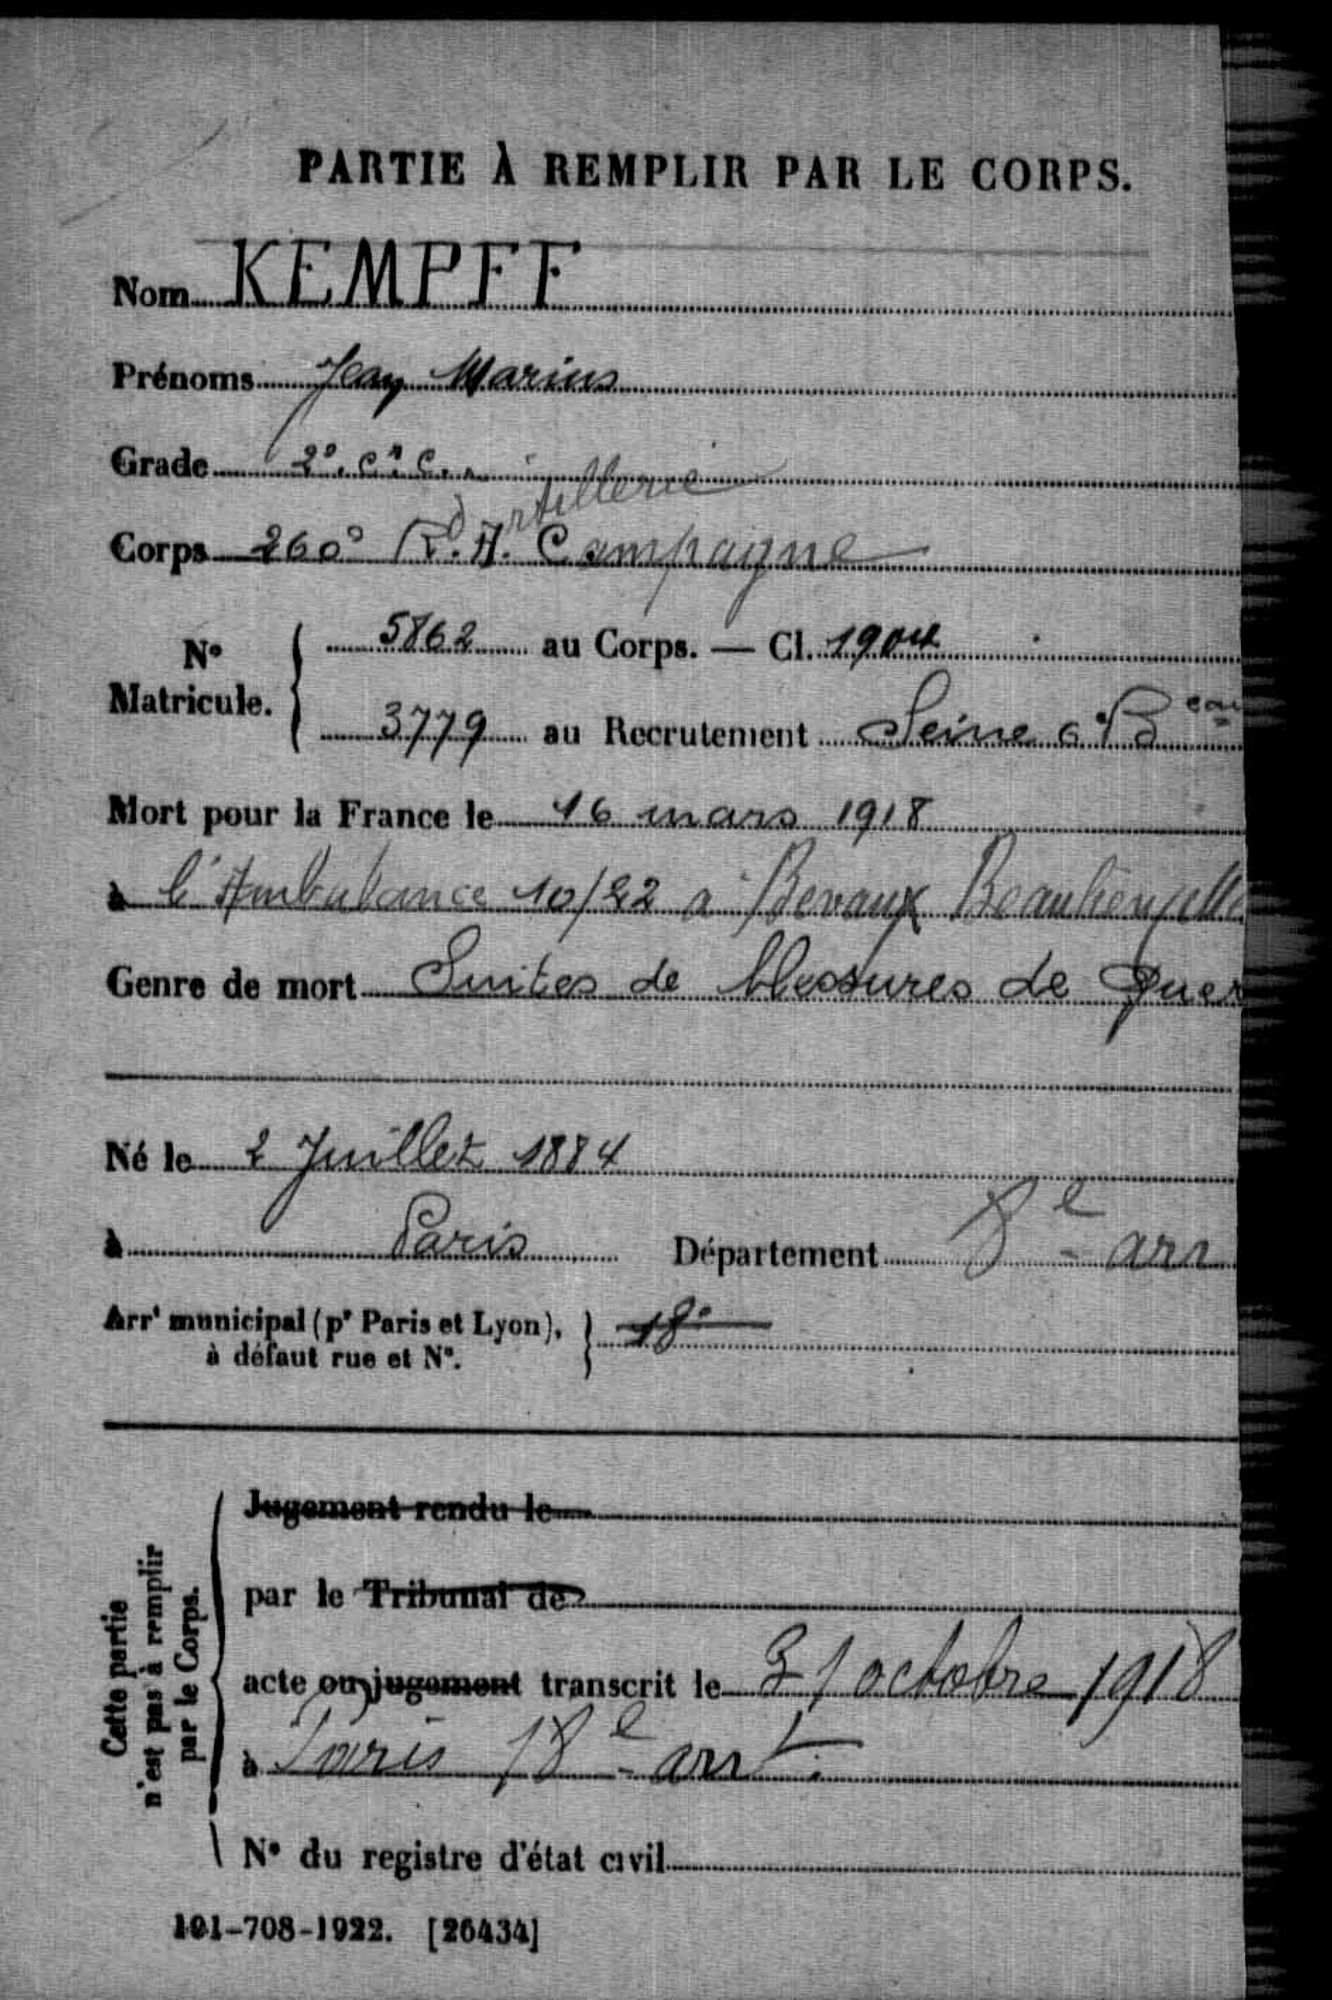 PARTIE À REMPLIR PAR LE CORPS.
Nom KEMPFF
Prénoms Jean Marius
Grade 2e. cr C.
d'artillerie
Corps 260e R.A. Campagne
No Matricule. 5862 au Corps. — Cl. 1904
3779 au Recrutement Seine 6e Beau
Mort pour la France le 16 mars 1918
à l'Ambulance 10/22 à Bevaux
Genre de mort Suites de blessures de guer
Né le 2 Juillet 1884
à Paris Département 8e arr
Arrt municipal (pr Paris et Lyon), à défaut rue et No. 18e
Cette partie n'est pas à remplir par le Corps.
Jugement rendu le
par le Tribunal de
acte ou jugement transcrit le 31 octobre 1918
à Paris 18e arrt.
No du registre d'état civil
101-708-1922. [26434]